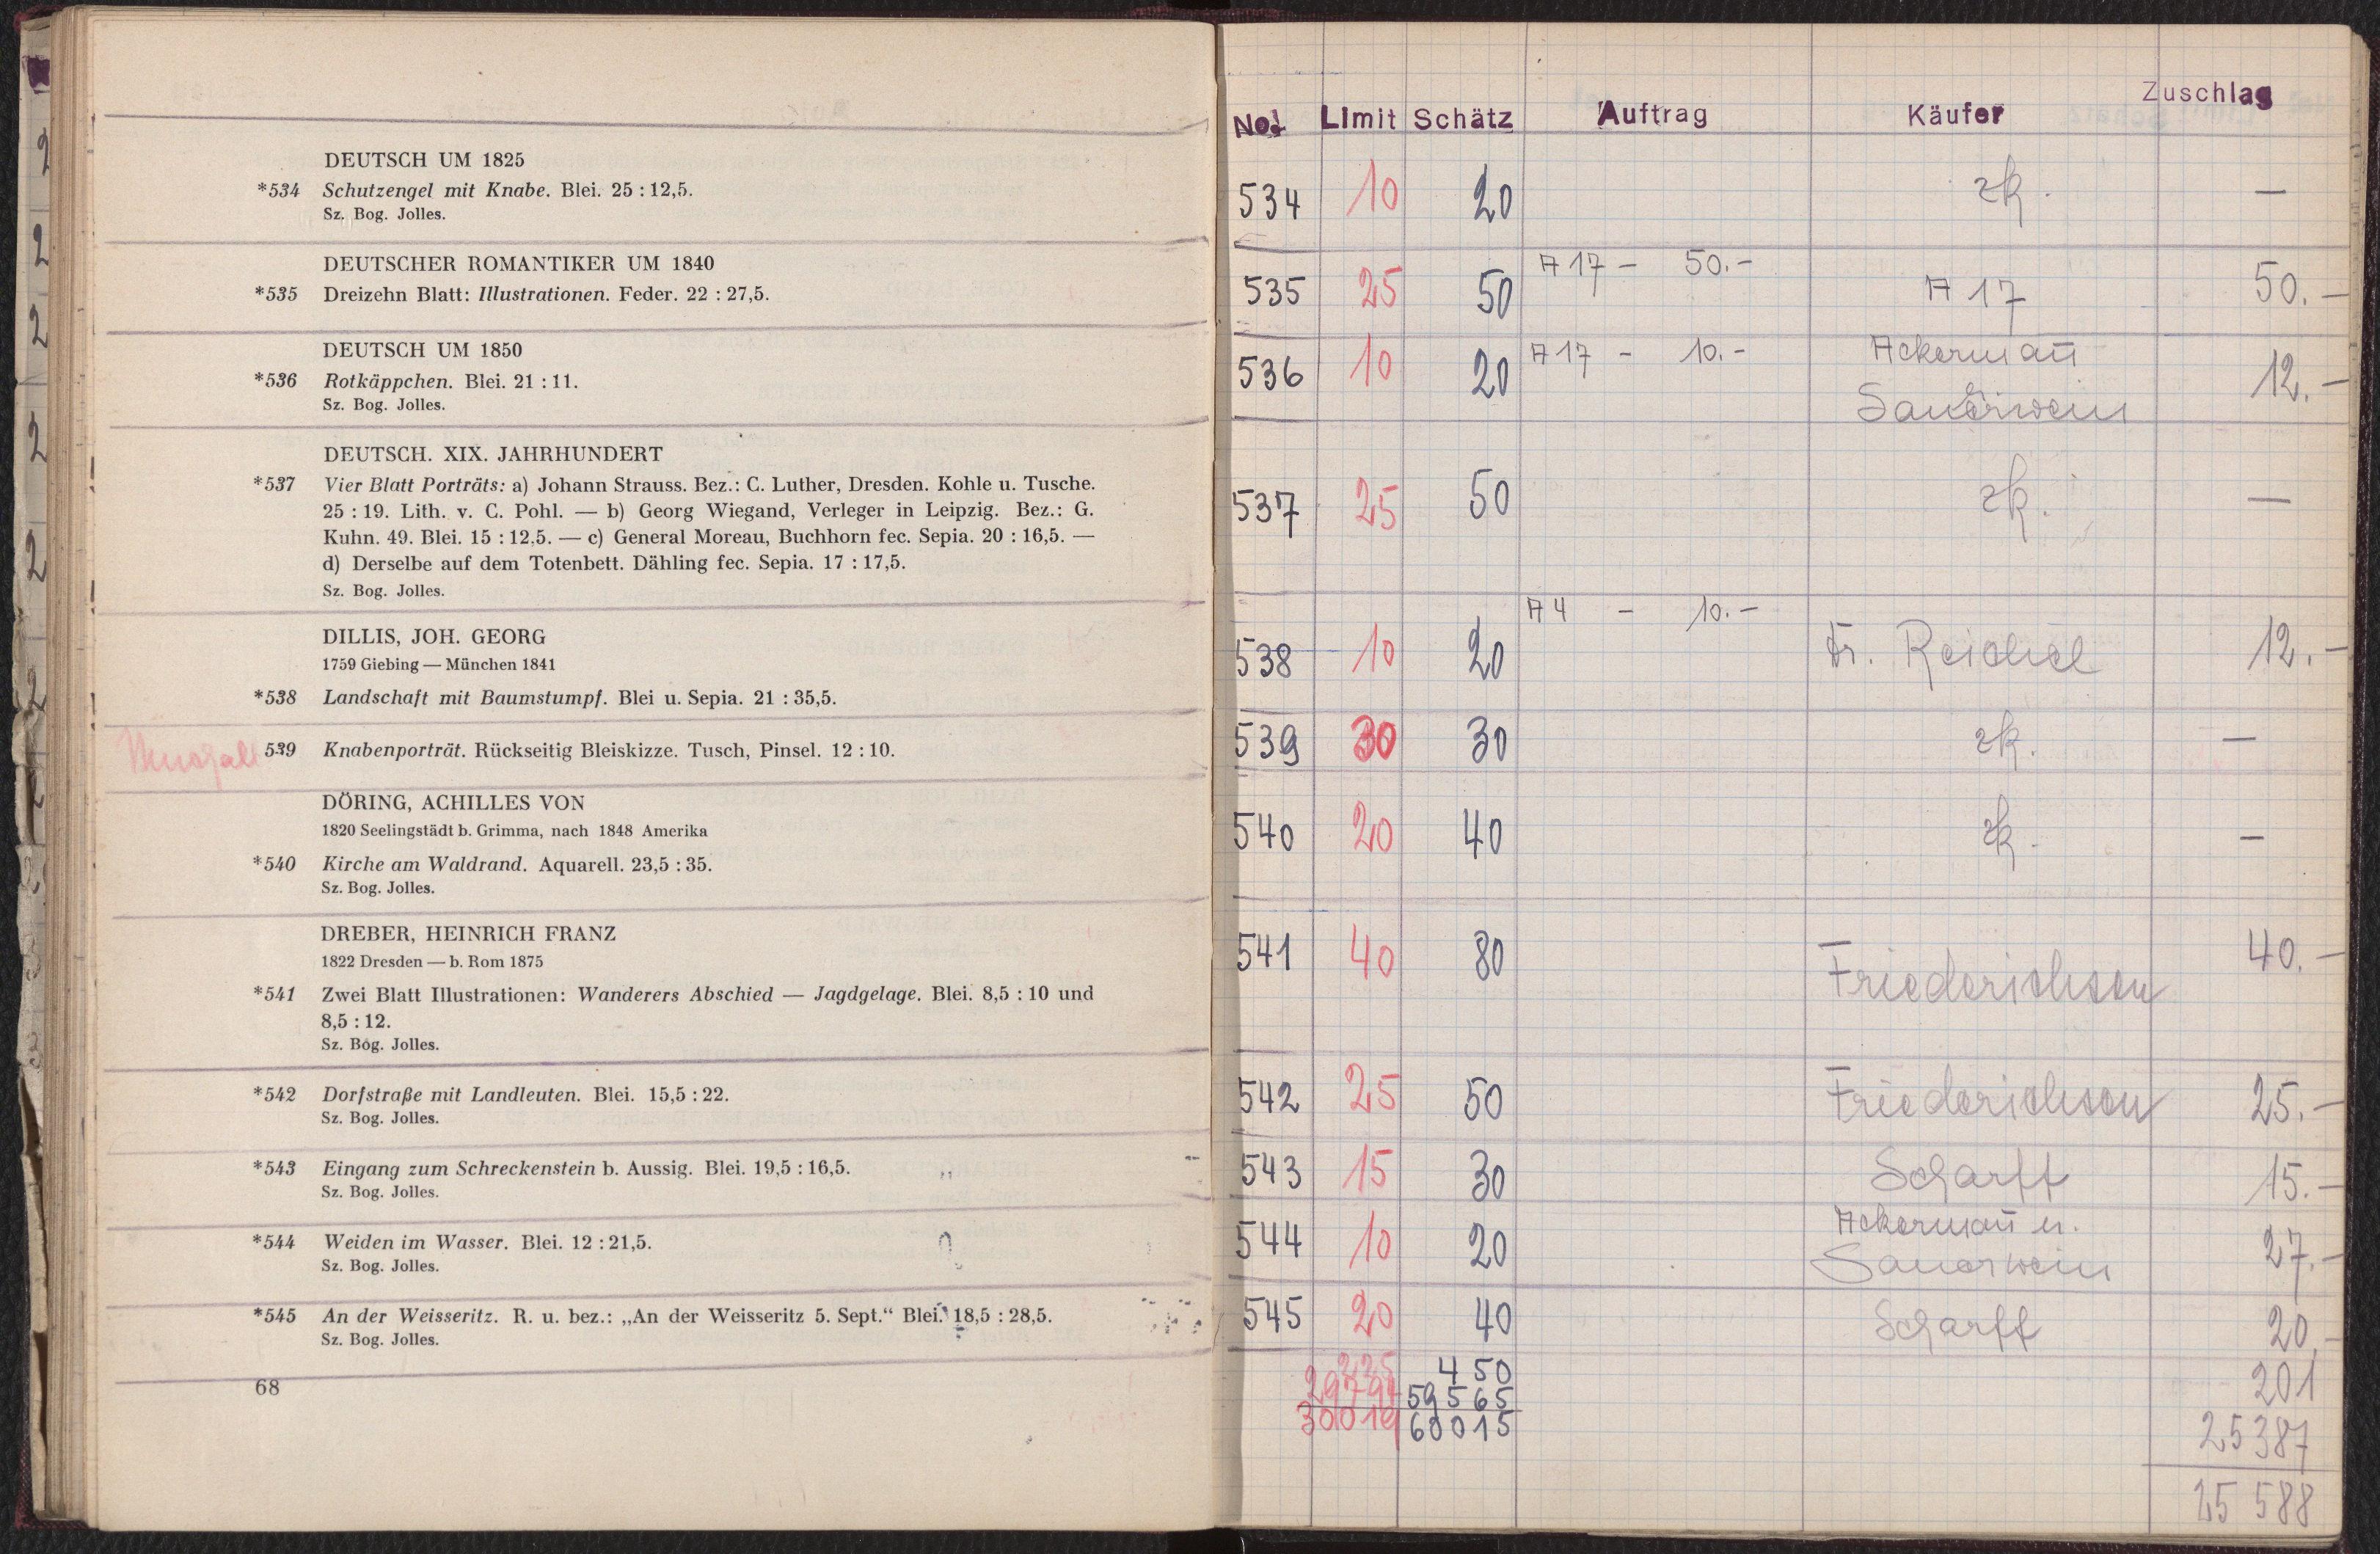 DEUTSCH UM 1825
*534 Schutzengel mit Knabe. Blei. 25 : 12,5.
Sz. Bog. Jolles.
DEUTSCHER ROMANTIKER UM 1840
*535 Dreizehn Blatt: Illustrationen. Feder. 22 : 27,5.
DEUTSCH UM 1850
*536 Rotkäppchen. Blei. 21 : 11.
Sz. Bog. Jolles.
DEUTSCH. XIX. JAHRHUNDERT
*537 Vier Blatt Porträts: a) Johann Strauss. Bez.: C. Luther, Dresden. Kohle u. Tusche.
25 : 19. Lith. v. C. Pohl. — b) Georg Wiegand, Verleger in Leipzig. Bez.: G.
Kuhn. 49. Blei. 15 : 12,5. — c) General Moreau, Buchhorn fec. Sepia. 20 : 16,5. —
d) Derselbe auf dem Totenbett. Dähling fec. Sepia. 17 : 17,5.
Sz. Bog. Jolles.
DILLIS, JOH. GEORG
1759 Giebing — München 1841
*538 Landschaft mit Baumstumpf. Blei u. Sepia. 21 : 35,5.
539 Knabenporträt. Rückseitig Bleiskizze. Tusch, Pinsel. 12 : 10.
DÖRING, ACHILLES VON
1820 Seelingstädt b. Grimma, nach 1848 Amerika
*540 Kirche am Waldrand. Aquarell. 23,5 : 35.
Sz. Bog. Jolles.
DREBER, HEINRICH FRANZ
1822 Dresden — b. Rom 1875
*541 Zwei Blatt Illustrationen: Wanderers Abschied — Jagdgelage. Blei. 8,5 : 10 und
8,5 : 12.
Sz. Bog. Jolles.
*542 Dorfstraße mit Landleuten. Blei. 15,5 : 22.
Sz. Bog. Jolles.
*543 Eingang zum Schreckenstein b. Aussig. Blei. 19,5 : 16,5.
Sz. Bog. Jolles.
*544 Weiden im Wasser. Blei. 12 : 21,5.
Sz. Bog. Jolles.
*545 An der Weisseritz. R. u. bez.: „An der Weisseritz 5. Sept.“ Blei. 18,5 : 28,5.
Sz. Bog. Jolles.
68
No. Limit Schätz Auftrag Käufer Zuschlag
534 10 20 zk. —
535 25 50 A 17 – 50.– A 17 50.—
536 10 20 A 17 – 10.– Ackermañ
Sauerwein 12.—
537 25 50 zk. —
538 10 20 A 4 – 10.– Dr. Reichel 12.—
539 30 30 zk. —
540 20 40 zk. —
541 40 80 Friederichsen 40.—
542 25 50 Friederichsen 25.—
543 15 30 Scharff 15.—
544 10 20 Ackermañ u.
Sauerwein 27.—
545 20 40 Scharff 20.—
225 450 201
29794 59565 25387
30019 60015 25588